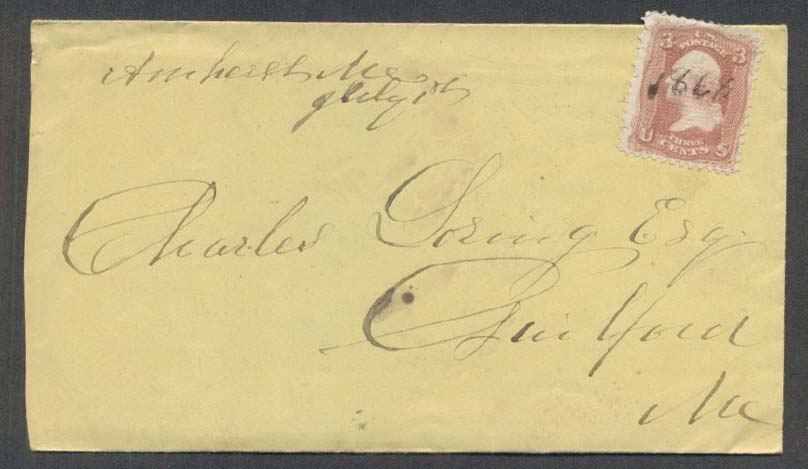 Amherst Me
July 1st
3 U.S. 3
POSTAGE
1868
U THREE S
CENTS
Charles Loring Esq.
Guilford
Me